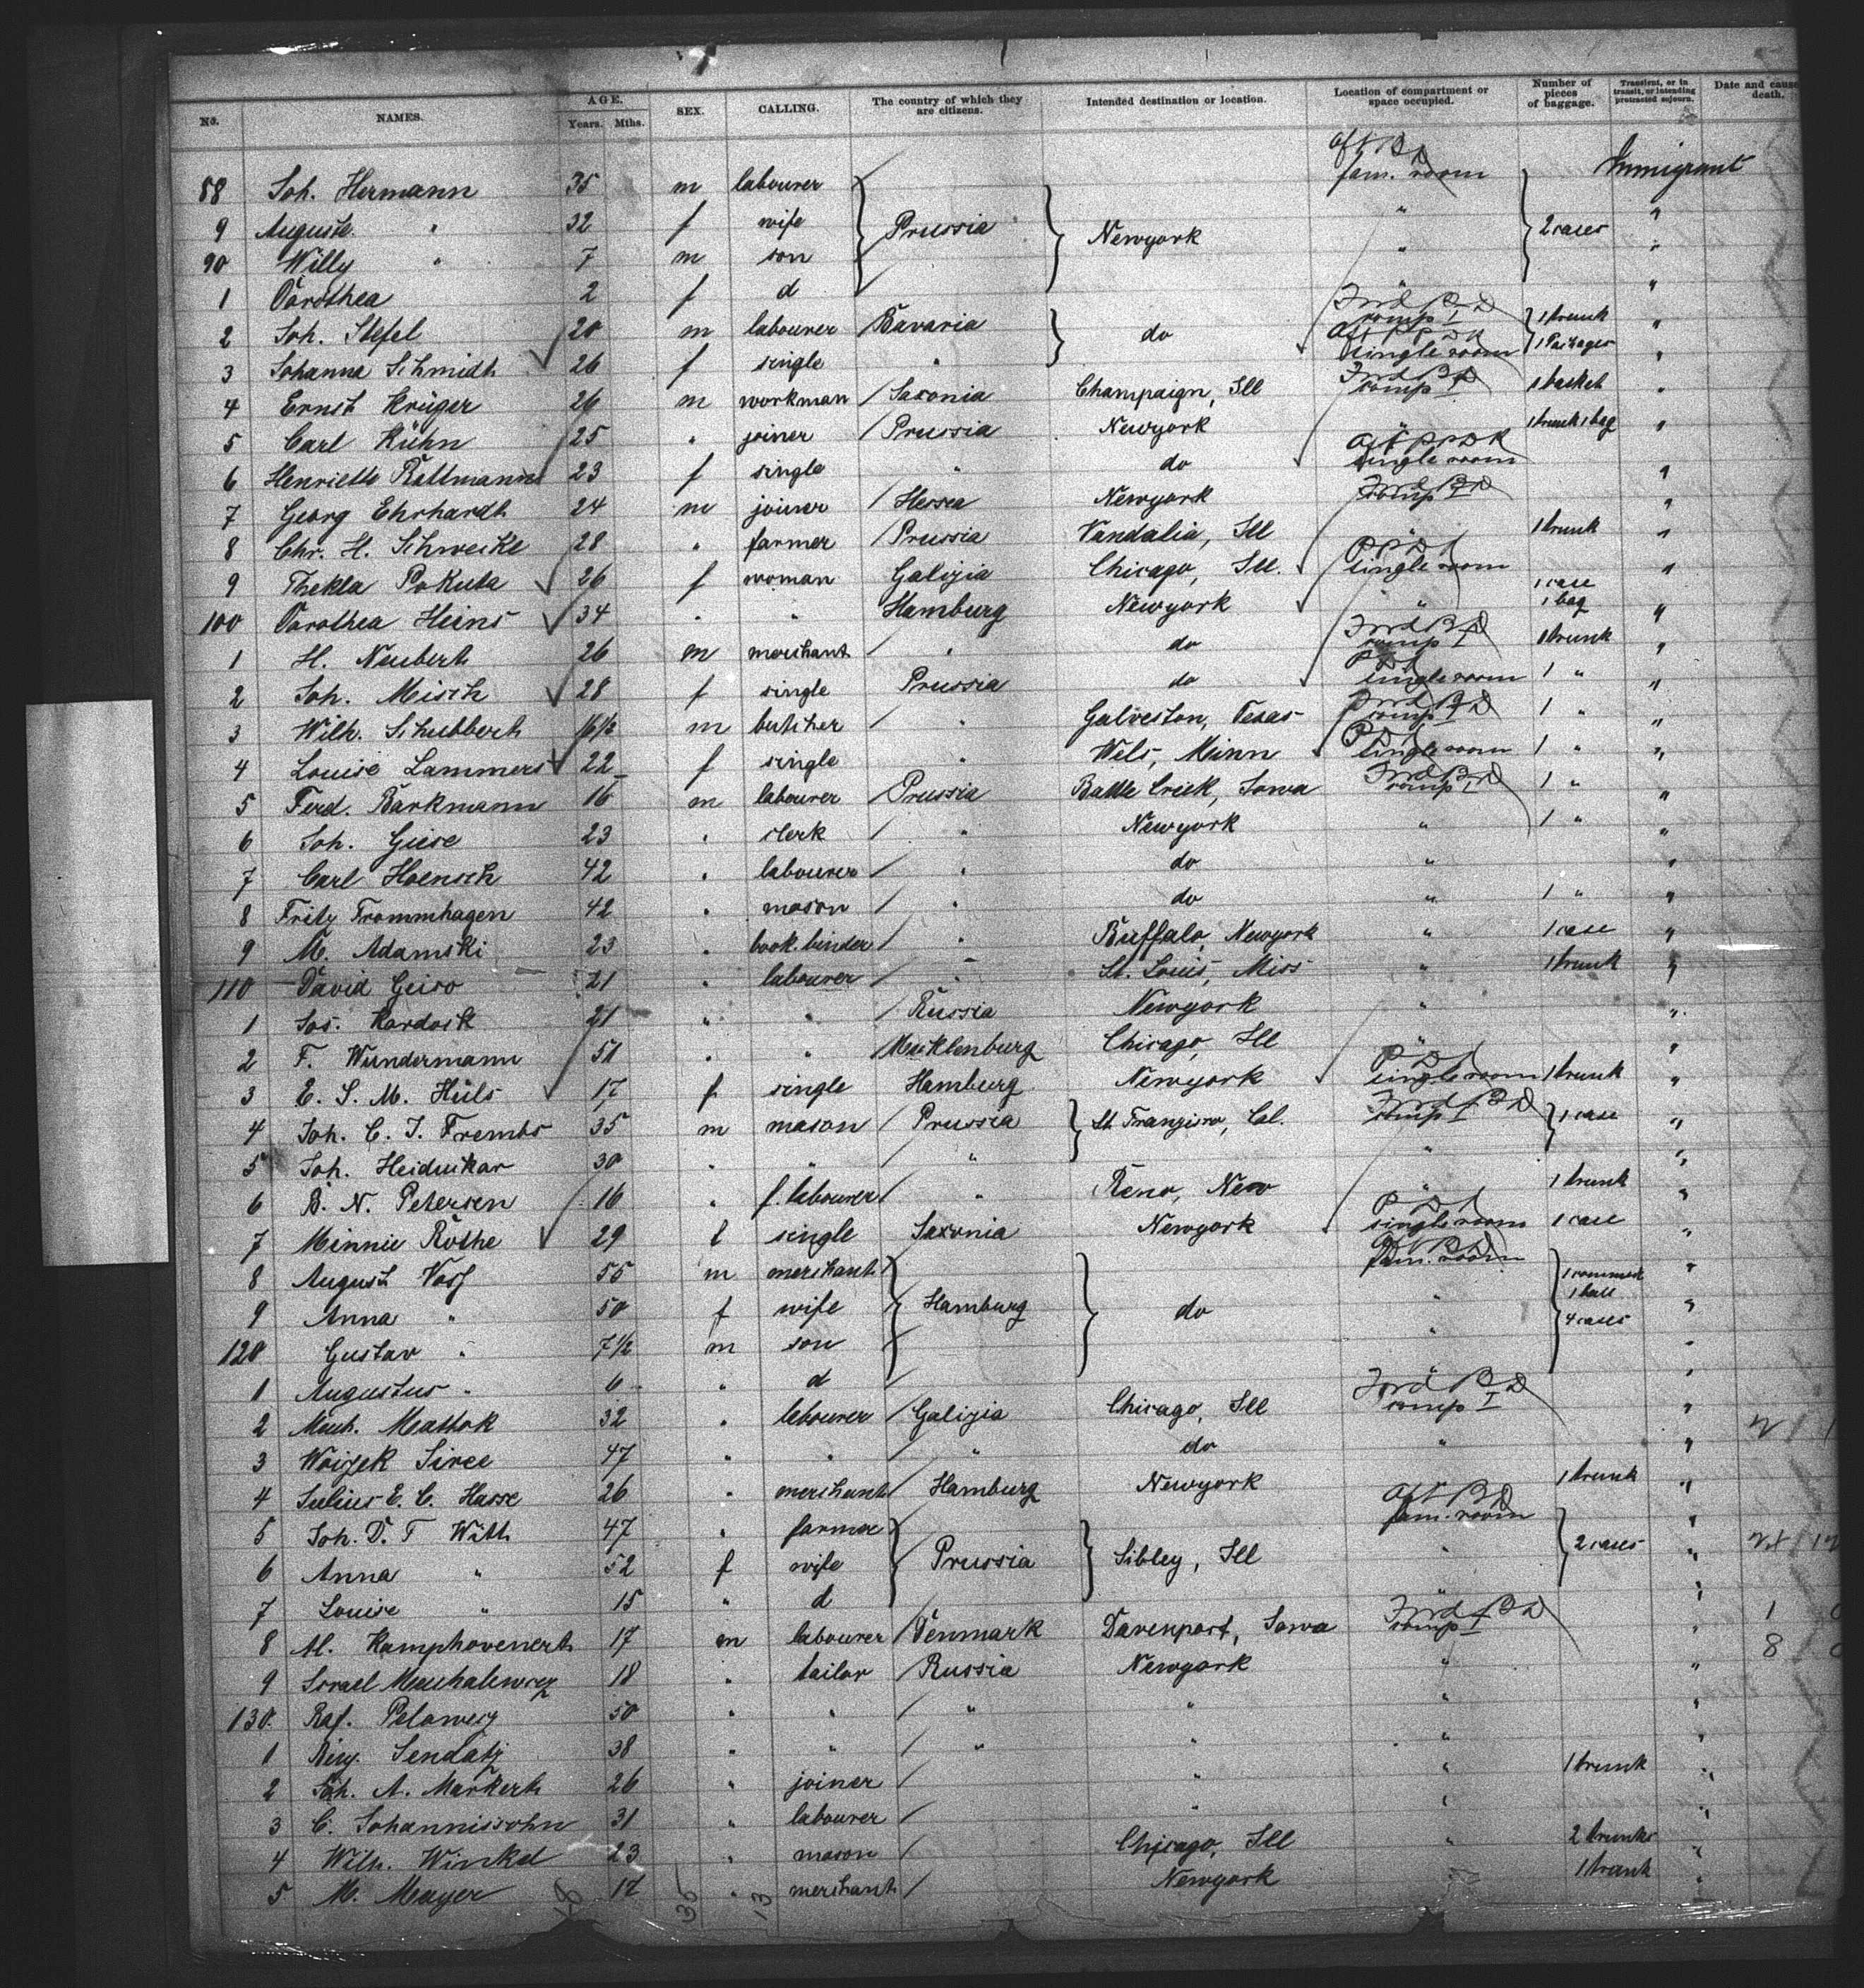 No. NAMES. AGE. Years. Mths. SEX. CALLING. The country of which they are citizens. Intended destination or location. Location of compartment or space occupied. Number of pieces of baggage. Transient, or in transit, or intending protracted sojourn. Date and cause death.
88 Joh. Hermann 35 m labourer Aft BD fam. room Immigrant
9 Auguste " 32 f wife Prussia Newyork " 2 cases "
90 Willy " 7 m son " "
1 Dorothea 2 f d " "
2 Joh. Stefel 20 m labourer Bavaria do Frd BD comp I 1 trunk "
3 Johanna Schmidt 26 f single " single room 1 Packages "
4 Ernst Krüger 26 m workman Saxonia Champaign, Ill Frd BD comp I 1 basket "
5 Carl Kühn 25 " joiner Prussia Newyork " 1 trunk 1 bag "
6 Henriette Rattmann 23 f single " do single room "
7 Georg Ehrhardt 24 m joiner Hessia Newyork Frd BD comp I "
8 Chr. H. Schweikl 28 " farmer Prussia Vandalia, Ill " 1 trunk "
9 Thekla Pokuta 26 f woman Galizia Chicago, Ill. single room "
100 Dorothea Heins 34 " " Hamburg Newyork " 1 case 1 bag "
1 H. Neubert 26 m merchant " do Frd BD comp I 1 trunk "
2 Joh. Misch 28 f single Prussia do single room 1 " "
3 Wilh. Schubbert 16½ m butcher " Galveston, Texas Frd BD comp I 1 " "
4 Louise Lammers 22 f single " Wels, Minn single room 1 " "
5 Ferd. Barkmann 16 m labourer Prussia Battle Creek, Iowa Frd BD comp I 1 " "
6 Joh. Giese 23 " clerk " Newyork " 1 " "
7 Carl Hoensch 42 " labourer " do " "
8 Fritz Trommhagen 42 " mason " do " 1 " "
9 M. Adamski 23 " book.binder " Buffalo, Newyork " 1 case "
110 David Geiro 21 " labourer " St. Louis, Miss " 1 trunk "
1 Jos. Kardosk 21 " " Russia Newyork " "
2 F. Wundermann 51 " " Mecklenburg Chicago, Ill " "
3 E. S. M. Hüls 17 f single Hamburg Newyork single room 1 trunk "
4 Joh. C. J. Frembs 35 m mason Prussia St. Franzisco, Cal. Frd BD comp I 1 case "
5 Joh. 30 " " " " "
6 B. N. Petersen 16 " f. labourer " Reno, New " 1 trunk "
7 Minnie Rothe 29 f single Saxonia Newyork single room 1 case "
8 August Voss 55 m merchant Aft BD fam. room "
9 Anna " 50 f wife Hamburg do " 4 cases "
120 Gustav " 7½ m son " "
1 Augustus " 6 " d " "
2 Mich. Mattok 32 " labourer Galizia Chicago, Ill Frd BD comp I "
3 Woizek Siree 47 " " " do " "
4 Julius E. C. Hasse 26 " merchant Hamburg Newyork 1 trunk "
5 Joh. D. T Witt 47 " farmer Aft BD fam. room "
6 Anna " 52 f wife Prussia Sibley, Ill " 2 cases "
7 Louise " 15 " d " "
8 M. Kamphovenert 17 m labourer Denmark Davenport, Iowa Frd BD comp I "
9 Israel 18 " tailor Russia Newyork " "
130 Raf. 50 " " " " " "
1 Sendatz 38 " " " " " "
2 Joh. A. Markert 26 " joiner " " 1 trunk "
3 C. Johannissohn 31 " labourer " " "
4 Wilh. Winkel 23 " mason Chicago, Ill " 2 trunks "
5 M. Mayer 17 " merchant Newyork 1 trunk "